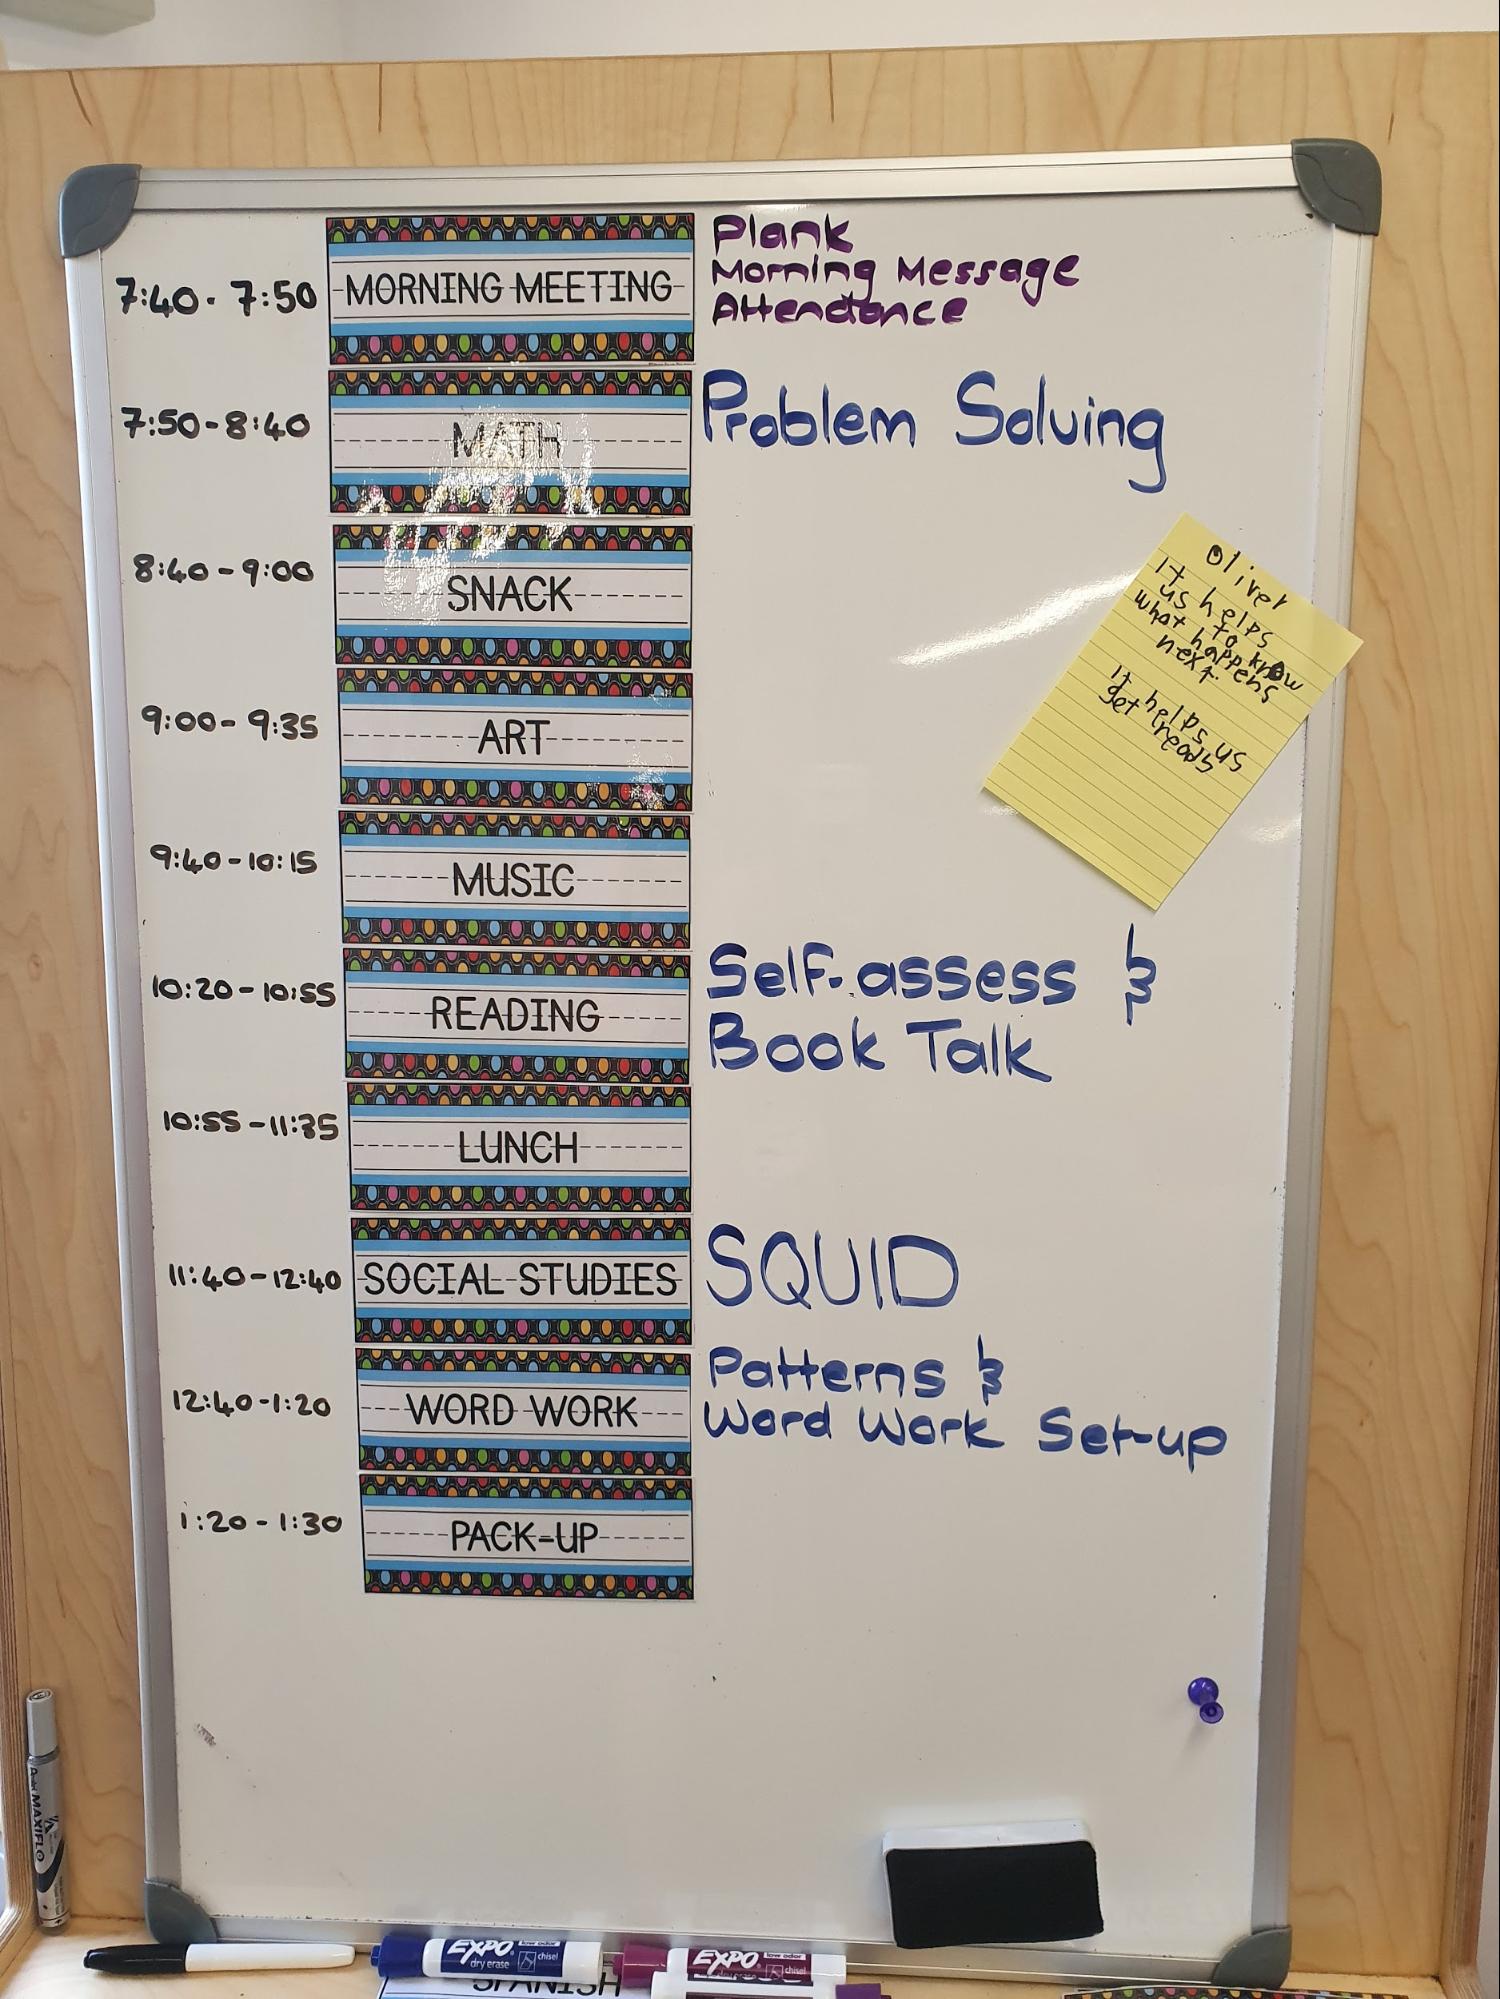 7:40 - 7:50 MORNING MEETING
Plank
Morning Message
Attendance
7:50 - 8:40 MATH
Problem Solving
8:40 - 9:00 SNACK
9:00 - 9:35 ART
9:40 - 10:15 MUSIC
10:20 - 10:55 READING
Self-assess &
Book Talk
10:55 - 11:35 LUNCH
11:40 - 12:40 SOCIAL STUDIES
SQUID
12:40 - 1:20 WORD WORK
Patterns &
Word Work Set-up
1:20 - 1:30 PACK-UP
Oliver
It helps
us to know
what happens
next.
It helps us
get ready
MAXIFLO
EXPO
low odor
dry erase
chisel
EXPO
low odor
chisel
SPANISH